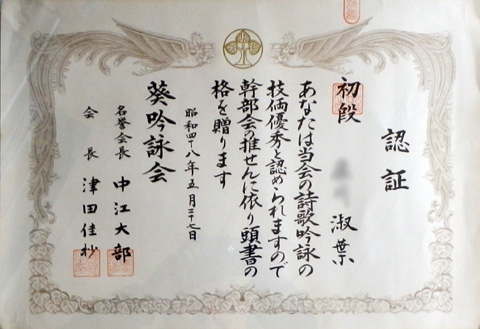 認証
初段
淑葉
あなたは当会の詩歌吟詠の
技価優秀と認められますので
幹部会の推せんに依り頭書の
格を贈ります
昭和四十八年五月二十七日
葵吟詠会
名誉会長 中江大部
会長 津田佳抄